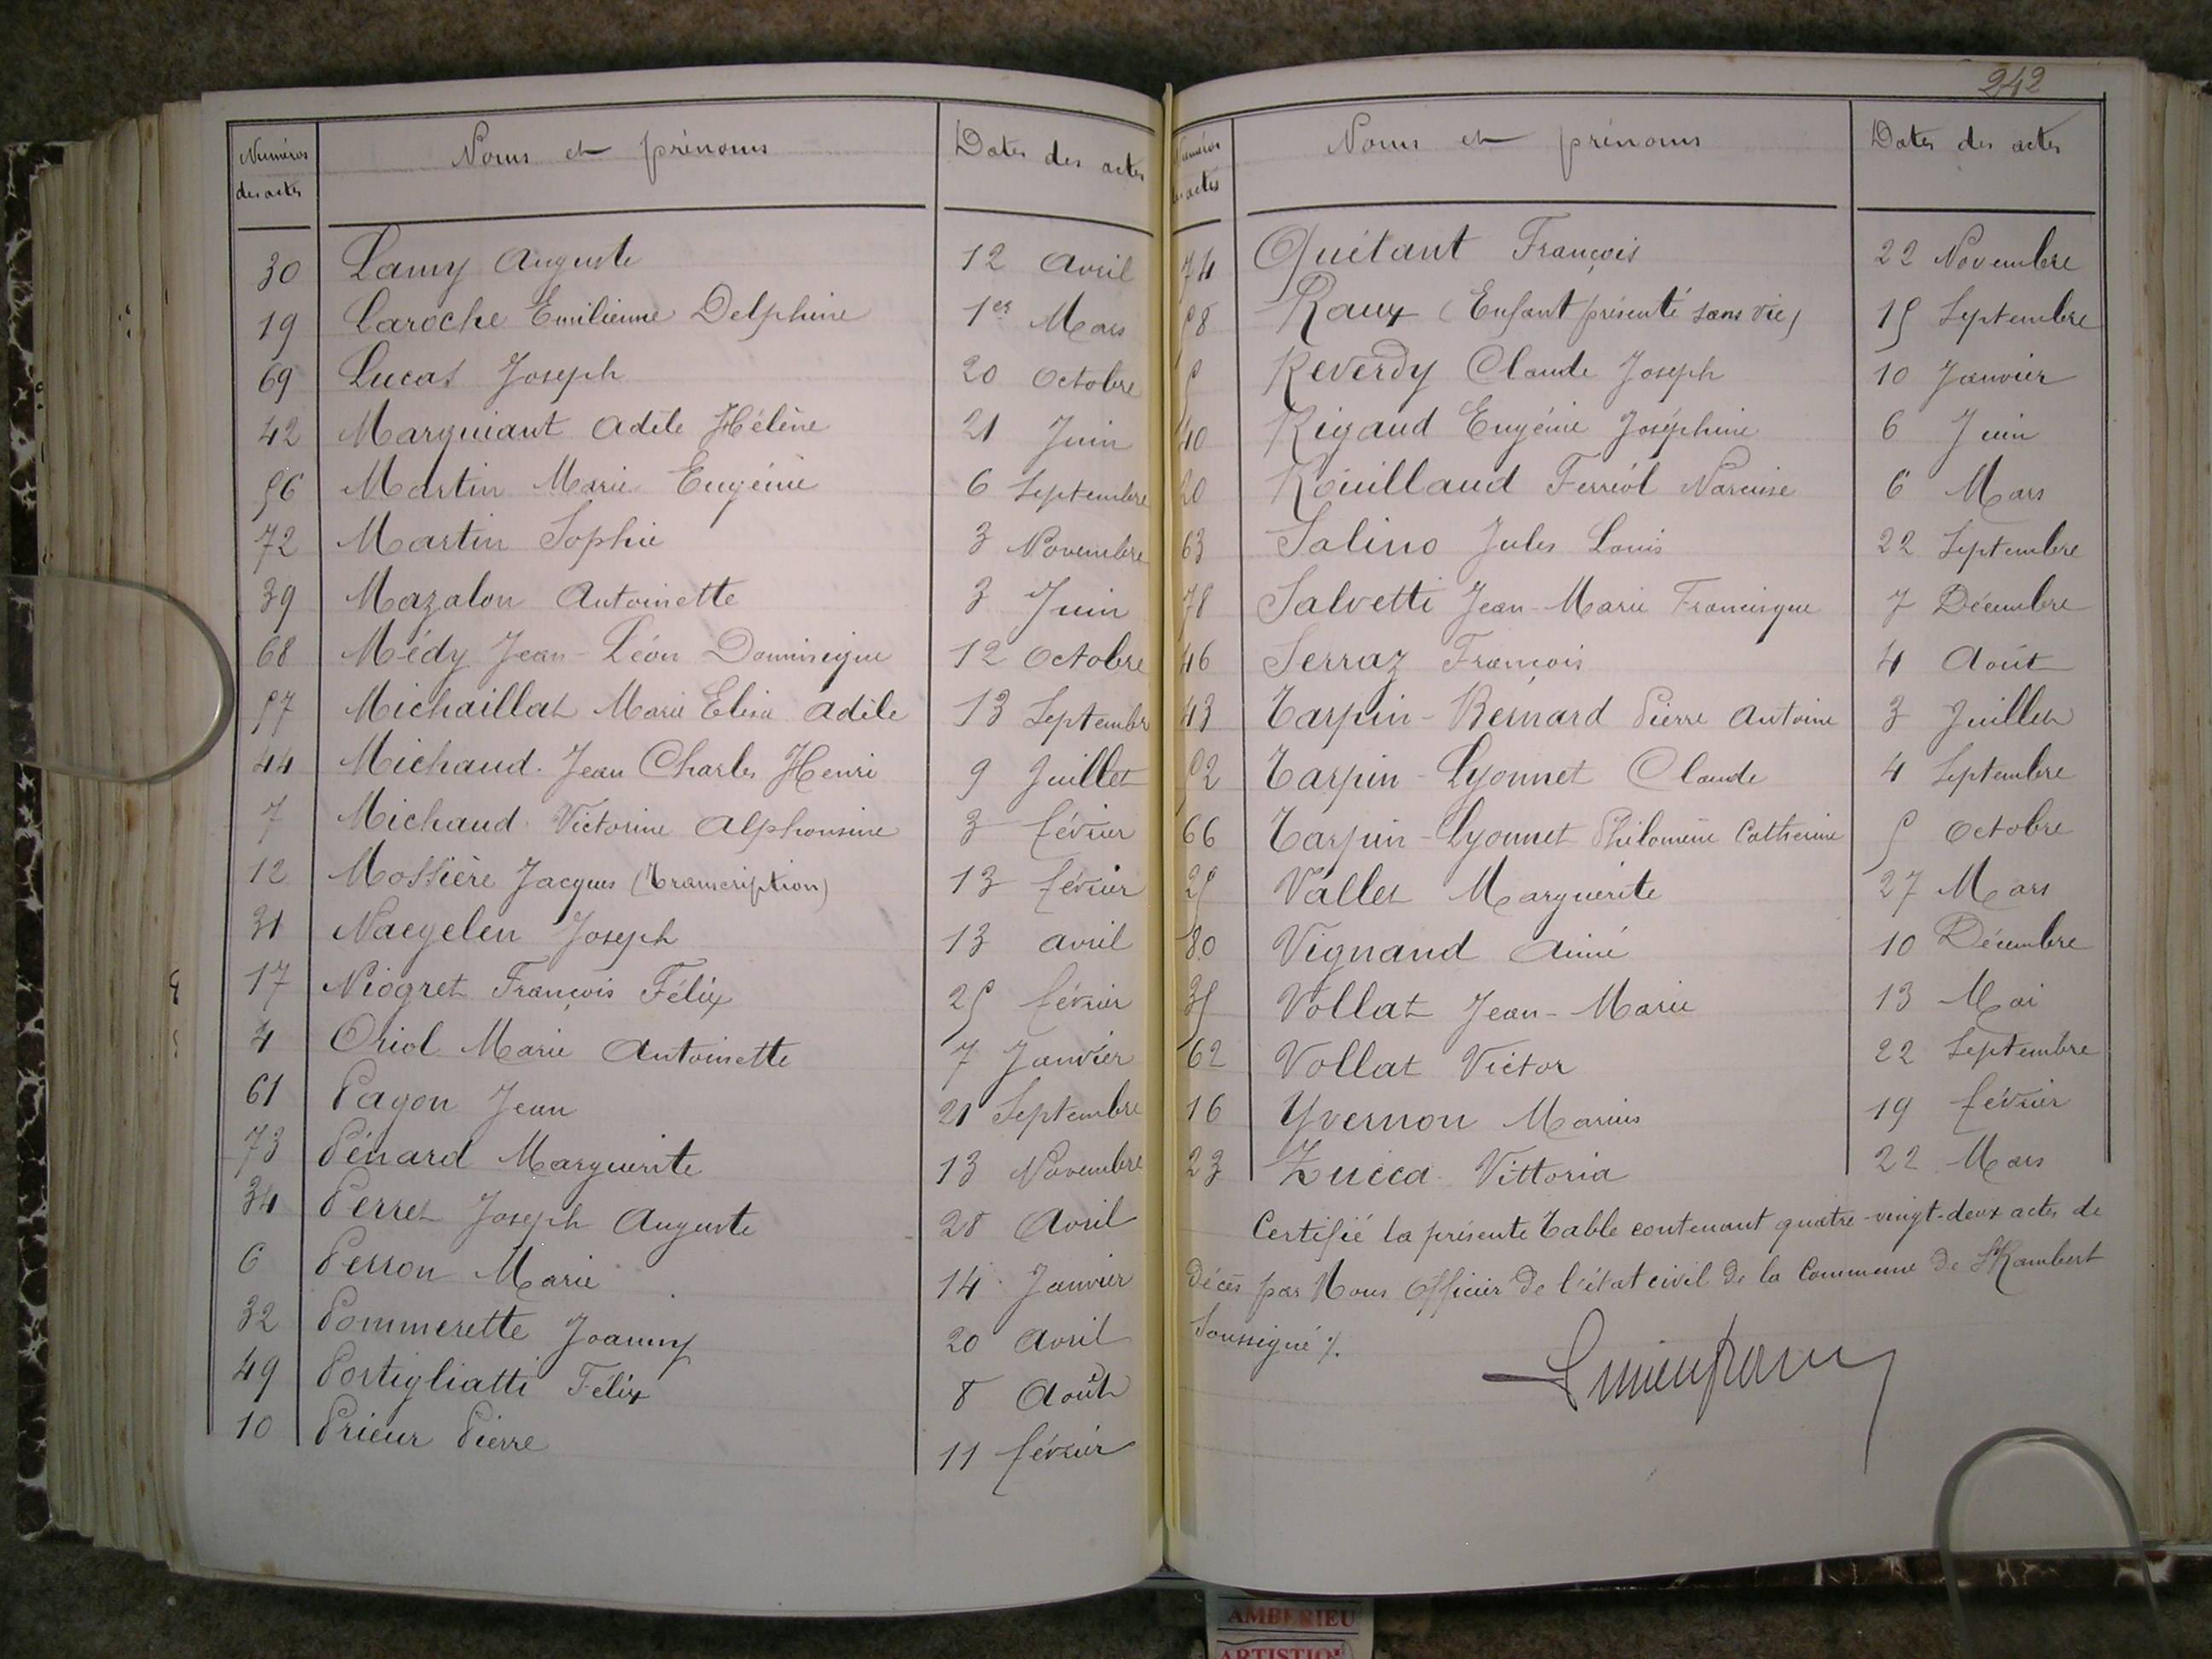 Numéros des actes Noms et prénoms Dates des actes
30 Lamy Auguste 12 Avril
19 Laroche Emilienne Delphine 1er Mars
69 Lucas Joseph 20 Octobre
42 Marguiant Adèle Hélène 21 Juin
56 Martin Marie Eugénie 6 Septembre
72 Martin Sophie 3 Novembre
39 Mazalon Antoinette 3 Juin
68 Médy Jean-Léon Dominique 12 Octobre
57 Michaillat Marie Elisa Adèle 13 Septembre
44 Michaud Jean Charles Henri 9 Juillet
7 Michaud Victorine Alphonsine 3 février
12 Mossière Jacques (Transcription) 13 février
31 Naegelen Joseph 13 avril
17 Niogret François Félix 25 février
4 Oriol Marie Antoinette 7 Janvier
61 Pagon Jean 21 Septembre
73 Pénard Marguerite 13 Novembre
34 Perret Joseph Auguste 28 Avril
6 Perron Marie 14 Janvier
32 Pommerette Joanny 20 Avril
49 Portigliatti Félix 8 Août
10 Prieur Pierre 11 février
242
Numéros des actes Noms et prénoms Dates des actes
74 Quétant François 22 Novembre
58 Raux (Enfant présenté sans vie) 15 Septembre
5 Reverdy Claude Joseph 10 Janvier
40 Rigaud Eugénie Joséphine 6 Juin
20 Rouillaud Ferréol Narcisse 6 Mars
63 Salino Jules Louis 22 Septembre
78 Salvetti Jean-Marie Francisque 7 Décembre
46 Serraz François 4 Août
43 Tarpin-Bernard Pierre Antoine 3 Juillet
52 Tarpin-Lyonnet Claude 4 Septembre
66 Tarpin-Lyonnet Philomène Catherine 5 Octobre
25 Vallet Marguerite 27 Mars
80 Vignand Aimé 10 Décembre
35 Vollat Jean-Marie 13 Mai
62 Vollat Victor 22 Septembre
16 Yvernon Marius 19 février
23 Zucca Vittoria 22 Mars
Certifié la présente Table contenant quatre-vingt-deux actes de
décès par Nous Officier de l'état civil de la Commune de St Rambert
soussigné %.
AMBERIEU